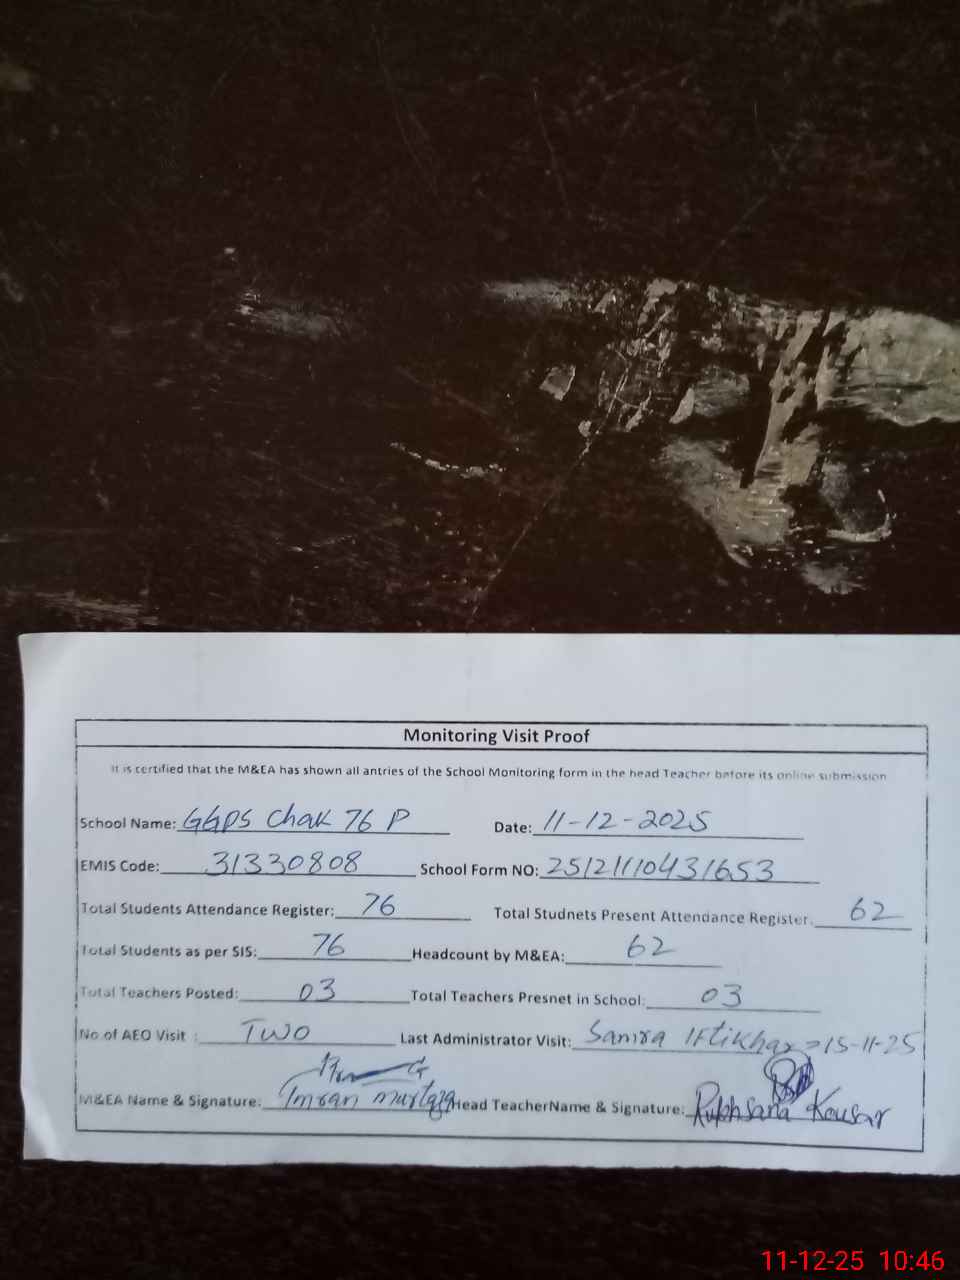 Monitoring Visit Proof
It is certified that the M&EA has shown all antries of the School Monitoring form in the head Teacher before its online submission
School Name: GGPS Chak 76 P Date: 11-12-2025
EMIS Code: 31330808 School Form NO: 25121110431653
Total Students Attendance Register: 76 Total Studnets Present Attendance Register: 62
Total Students as per SIS: 76 Headcount by M&EA: 62
Total Teachers Posted: 03 Total Teachers Presnet in School: 03
No of AEO Visit : TWO Last Administrator Visit: Samra Iftikhar 15-11-25
M&EA Name & Signature: Imran Murtaza Head TeacherName & Signature: Rukhsana Kousar
11-12-25 10:46